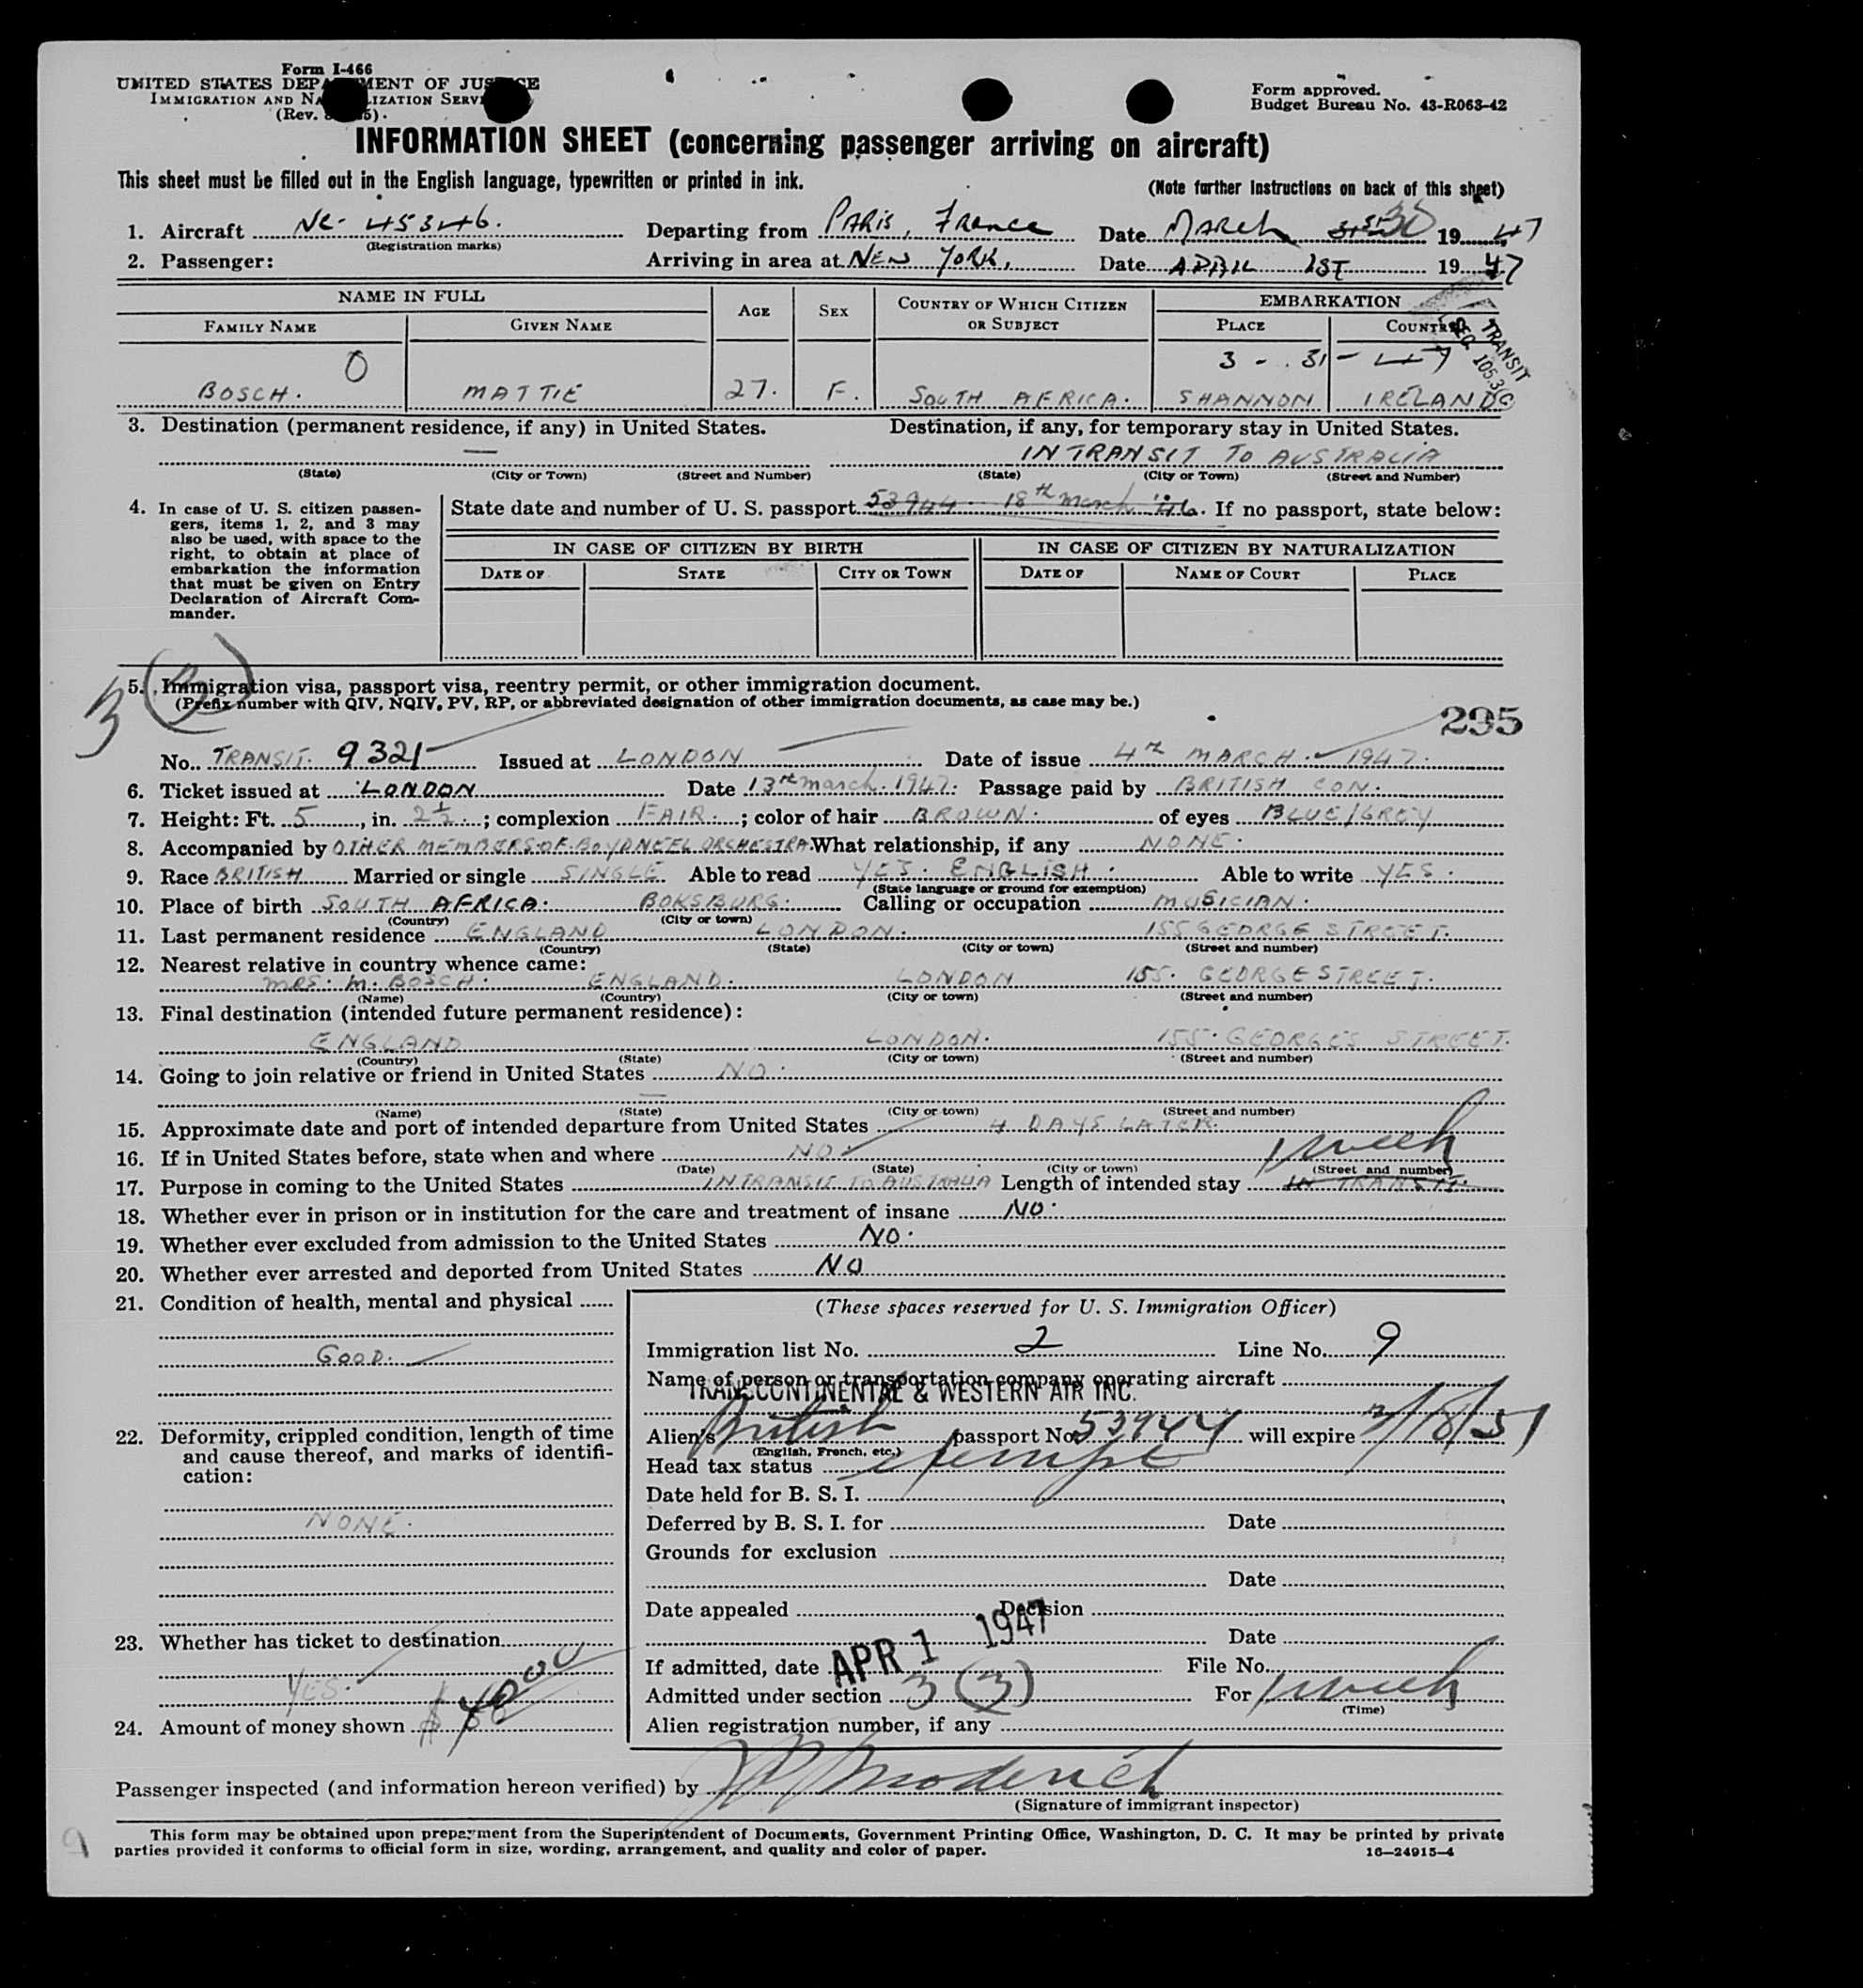 Form I-466
UNITED STATES DEPARTMENT OF JUSTICE
IMMIGRATION AND NATURALIZATION SERVICE
(Rev. 5).
Form approved.
Budget Bureau No. 43-R063-42
INFORMATION SHEET (concerning passenger arriving on aircraft)
This sheet must be filled out in the English language, typewritten or printed in ink.
(Note further instructions on back of this sheet)
1. Aircraft NC- 45346. Departing from PARIS, France Date March 31st 30 1947
(Registration marks)
2. Passenger: Arriving in area at NEW YORK, Date APRIL 1ST 1947
NAME IN FULL AGE SEX COUNTRY OF WHICH CITIZEN OR SUBJECT EMBARKATION
FAMILY NAME GIVEN NAME PLACE COUNTRY
TRANSIT
REG. 105.3(C)
O 3 - 31 - 47
BOSCH. MATTIE 27. F. SOUTH AFRICA. SHANNON IRELAND
3. Destination (permanent residence, if any) in United States. Destination, if any, for temporary stay in United States.
— IN TRANSIT TO AUSTRALIA
(State) (City or Town) (Street and Number) (State) (City or Town) (Street and Number)
4. In case of U. S. citizen passengers, items 1, 2, and 3 may also be used, with space to the right, to obtain at place of embarkation the information that must be given on Entry Declaration of Aircraft Commander.
State date and number of U. S. passport 53944 18th March '46. If no passport, state below:
IN CASE OF CITIZEN BY BIRTH IN CASE OF CITIZEN BY NATURALIZATION
DATE OF STATE CITY OR TOWN DATE OF NAME OF COURT PLACE
3 (3)
5. Immigration visa, passport visa, reentry permit, or other immigration document.
(Prefix number with QIV, NQIV, PV, RP, or abbreviated designation of other immigration documents, as case may be.)
295
No. TRANSIT. 9321 Issued at LONDON Date of issue 4TH MARCH. 1947.
6. Ticket issued at LONDON Date 13th March. 1947. Passage paid by BRITISH CON.
7. Height: Ft. 5, in. 2½.; complexion FAIR.; color of hair BROWN. of eyes BLUE/GREY
8. Accompanied by OTHER MEMBERS OF BOYD NEEL ORCHESTRA What relationship, if any NONE.
9. Race BRITISH Married or single SINGLE Able to read YES. ENGLISH. Able to write YES.
(State language or ground for exemption)
10. Place of birth SOUTH AFRICA. BOKSBURG. Calling or occupation MUSICIAN.
(Country) (City or town)
11. Last permanent residence ENGLAND LONDON. 155 GEORGE STREET.
(Country) (State) (City or town) (Street and number)
12. Nearest relative in country whence came:
MRS. M. BOSCH. ENGLAND. LONDON 155. GEORGE STREET.
(Name) (Country) (City or town) (Street and number)
13. Final destination (intended future permanent residence):
ENGLAND LONDON. 155. GEORGES STREET.
(Country) (State) (City or town) (Street and number)
14. Going to join relative or friend in United States NO.
—
(Name) (State) (City or town) (Street and number)
15. Approximate date and port of intended departure from United States 4 DAYS LATER.
16. If in United States before, state when and where NO.
1 week
(Date) (State) (City or town) (Street and number)
17. Purpose in coming to the United States IN TRANSIT TO AUSTRALIA Length of intended stay IN TRANSIT.
18. Whether ever in prison or in institution for the care and treatment of insane NO.
19. Whether ever excluded from admission to the United States NO.
20. Whether ever arrested and deported from United States NO
21. Condition of health, mental and physical
GOOD.
22. Deformity, crippled condition, length of time and cause thereof, and marks of identification:
NONE.
23. Whether has ticket to destination
YES.
24. Amount of money shown $ 40 00
(These spaces reserved for U. S. Immigration Officer)
Immigration list No. 2 Line No. 9
Name of person or transportation company operating aircraft
TRANSCONTINENTAL & WESTERN AIR INC.
Alien's British passport No. 53944 will expire 3/18/51
(English, French, etc.)
Head tax status exempt
Date held for B. S. I.
Deferred by B. S. I. for Date
Grounds for exclusion
Date
Date appealed Decision
Date
If admitted, date APR 1 1947 File No.
Admitted under section 3 (3) For 1 week
(Time)
Alien registration number, if any
Passenger inspected (and information hereon verified) by
(Signature of immigrant inspector)
This form may be obtained upon prepayment from the Superintendent of Documents, Government Printing Office, Washington, D. C. It may be printed by private
parties provided it conforms to official form in size, wording, arrangement, and quality and color of paper. 16—24915-4
9